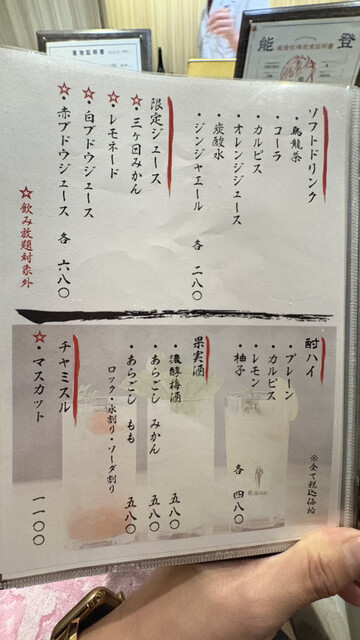 ソフトドリンク
・烏龍茶
・コーラ
・カルピス
・オレンジジュース
・炭酸水
・ジンジャエール 各 二八〇
限定ジュース
☆・三ヶ日みかん
☆・レモネード
☆・白ブドウジュース
☆・赤ブドウジュース 各 六八〇
☆飲み放題対象外
酎ハイ ※全て税込価格
・プレーン
・カルピス
・レモン
・柚子 各 四八〇
果実酒
・濃醇梅酒 五八〇
・あらごし みかん 五八〇
・あらごし もも 五八〇
ロック・水割り・ソーダ割り
チャミスル
☆・マスカット 一一〇〇
能登